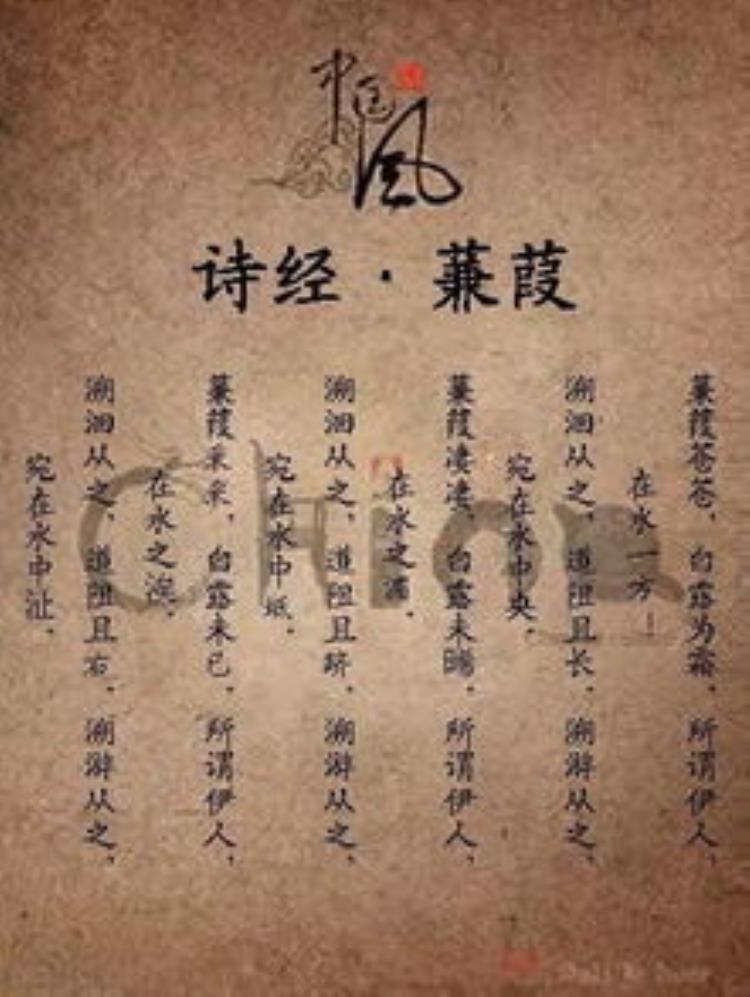 中国风
诗经·蒹葭
蒹葭苍苍，白露为霜，所谓伊人，
在水一方！
溯洄从之，道阻且长，溯游从之，
宛在水中央。
蒹葭凄凄，白露未晞，所谓伊人，
在水之湄。
溯洄从之，道阻且跻，溯游从之，
宛在水中坻。
蒹葭采采，白露未已，所谓伊人，
在水之涘。
溯洄从之，道阻且右，溯游从之，
宛在水中沚。
China